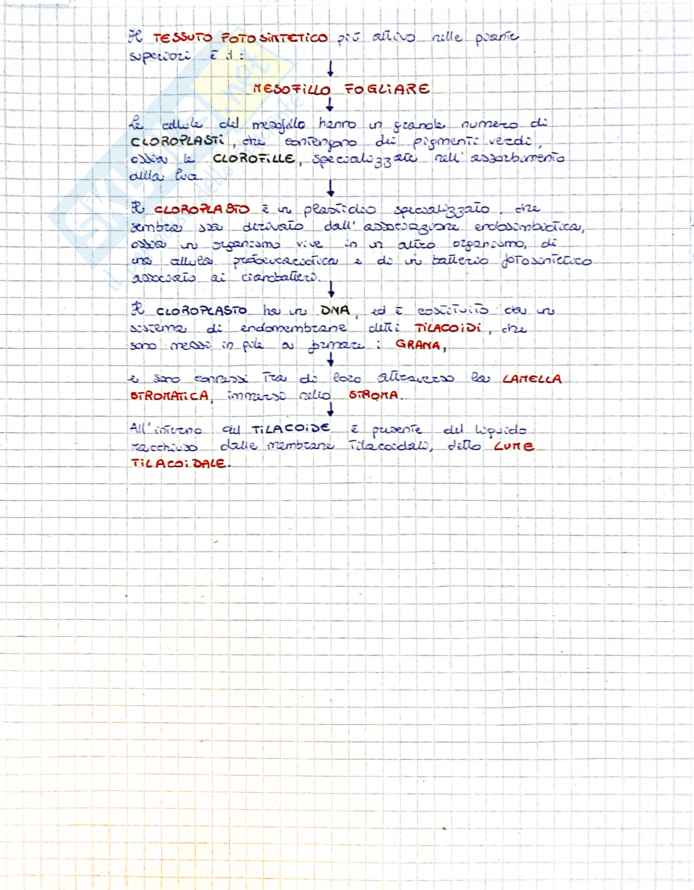 Il TESSUTO FOTOSINTETICO più attivo nelle piante
superiori è il:
MESOFILLO FOGLIARE
Le cellule del mesofillo hanno un grande numero di
CLOROPLASTI, che contengono dei pigmenti verdi,
ossia le CLOROFILLE, specializzate nell'assorbimento
della luce.
Il CLOROPLASTO è un plastidio specializzato, che
sembra sia derivato dall'associazione endosimbiotica,
ossia un organismo vive in un altro organismo, di
una cellula protoeucariotica e di un batterio fotosintetico
associato ai cianobatteri.
Il CLOROPLASTO ha un DNA, ed è costituito da un
sistema di endomembrane detti TILACOIDI, che
sono messi in pile a formare i GRANA,
e sono connessi tra di loro attraverso la LAMELLA
STROMATICA, immersi nello STROMA.
All'interno del TILACOIDE è presente del liquido
racchiuso dalle membrane tilacoidali, detto LUME
TILACOIDALE.